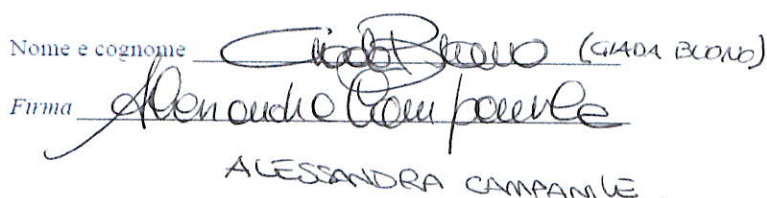 Nome e cognome Giada Buono (GIADA BUONO)
Firma Alessandra Campanile
ALESSANDRA CAMPANILE